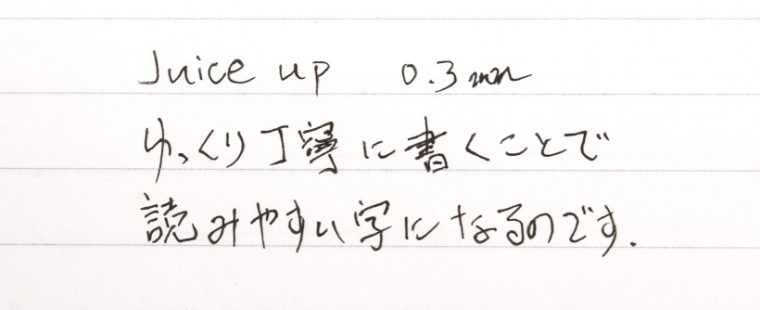 Juice up 0.3mm
ゆっくり丁寧に書くことで
読みやすい字になるのです.